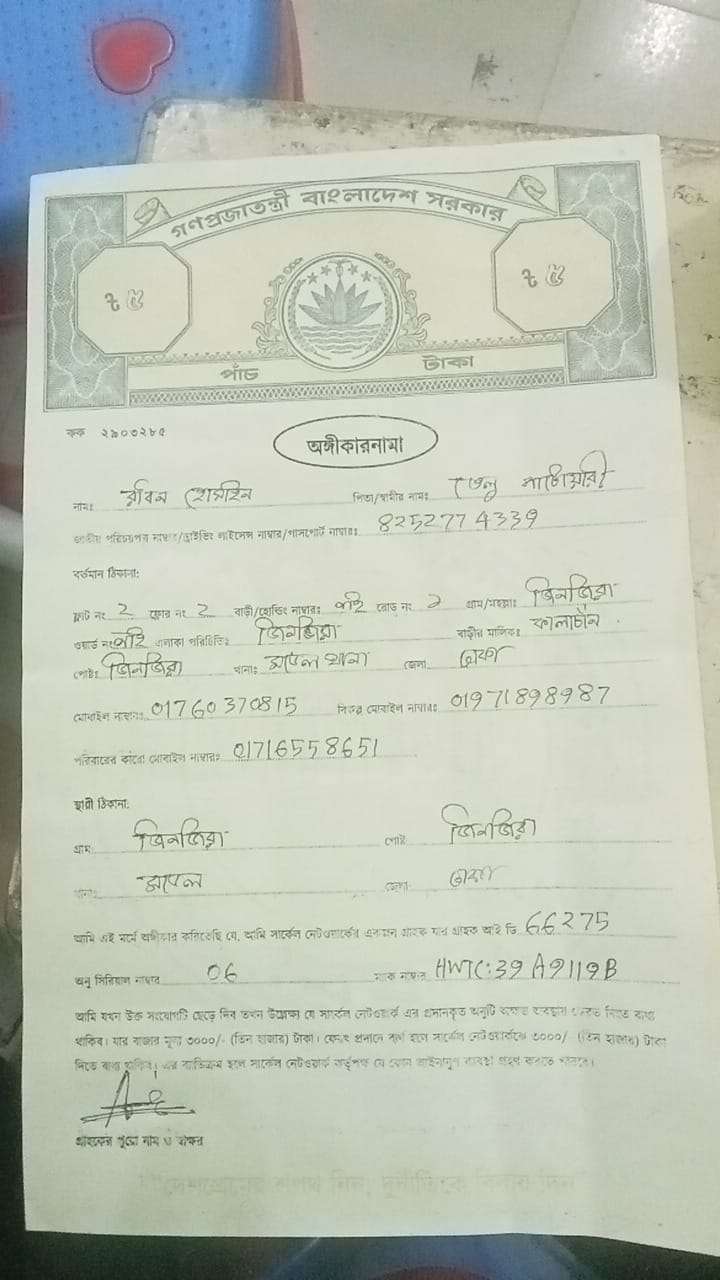 গণপ্রজাতন্ত্রী বাংলাদেশ সরকার
৳ ৫ ৳ ৫
পাঁচ টাকা
কক ২৯০৩২৮৫
অঙ্গীকারনামা
নামঃ রবিন হোসাইন পিতা/স্বামীর নামঃ
জাতীয় পরিচয়পত্র নাম্বার/ড্রাইভিং লাইসেন্স নাম্বার/পাসপোর্ট নাম্বারঃ 8252774339
বর্তমান ঠিকানা:
ফ্লাট নং 2 ফ্লোর নং 2 বাড়ী/হোল্ডিং নাম্বারঃ নাই রোড নং গ্রাম/মহল্লাঃ জিনজিরা
ওয়ার্ড নং নাই এলাকা পরিচিতিঃ জিনজিরা বাড়ীর মালিকঃ কালাচাঁন
পোষ্টঃ জিনজিরা থানাঃ মডেল থানা জেলা ঢাকা
মোবাইল নাম্বারঃ 01760370815 বিকল্প মোবাইল নাম্বারঃ 01971898987
পরিবারের কারো মোবাইল নাম্বারঃ 01716558651
স্থায়ী ঠিকানা:
গ্রাম: জিনজিরা পোষ্ট: জিনজিরা
থানা: মডেল জেলা: ঢাকা
আমি এই মর্মে অঙ্গীকার করিতেছি যে, আমি সার্কেল নেটওয়ার্কের একজন গ্রাহক যার গ্রাহক আই ডি 66275
অনু সিরিয়াল নাম্বার 06 ম্যাক নাম্বার HWTC:39A9119B
আমি যখন উক্ত সংযোগটি ছেড়ে দিব তখন উল্লেখ্য যে সার্কেল নেটওয়ার্ক এর প্রদানকৃত অনুটি অক্ষত অবস্থায় ফেরত দিতে বাধ্য
থাকিব। যার বাজার মূল্য ৩০০০/- (তিন হাজার) টাকা। ফেরৎ প্রদানে ব্যর্থ হলে সার্কেল নেটওয়ার্ককে ৩০০০/- (তিন হাজার) টাকা
দিতে বাধ্য থাকিব। এর ব্যতিক্রম হলে সার্কেল নেটওয়ার্ক কর্তৃপক্ষ যে কোন আইনানুগ ব্যবস্থা গ্রহণ করতে পারবে।
গ্রাহকের পুরো নাম ও স্বাক্ষর
"দেশপ্রেমের শপথ নিন, দুর্নীতিকে বিদায় দিন"